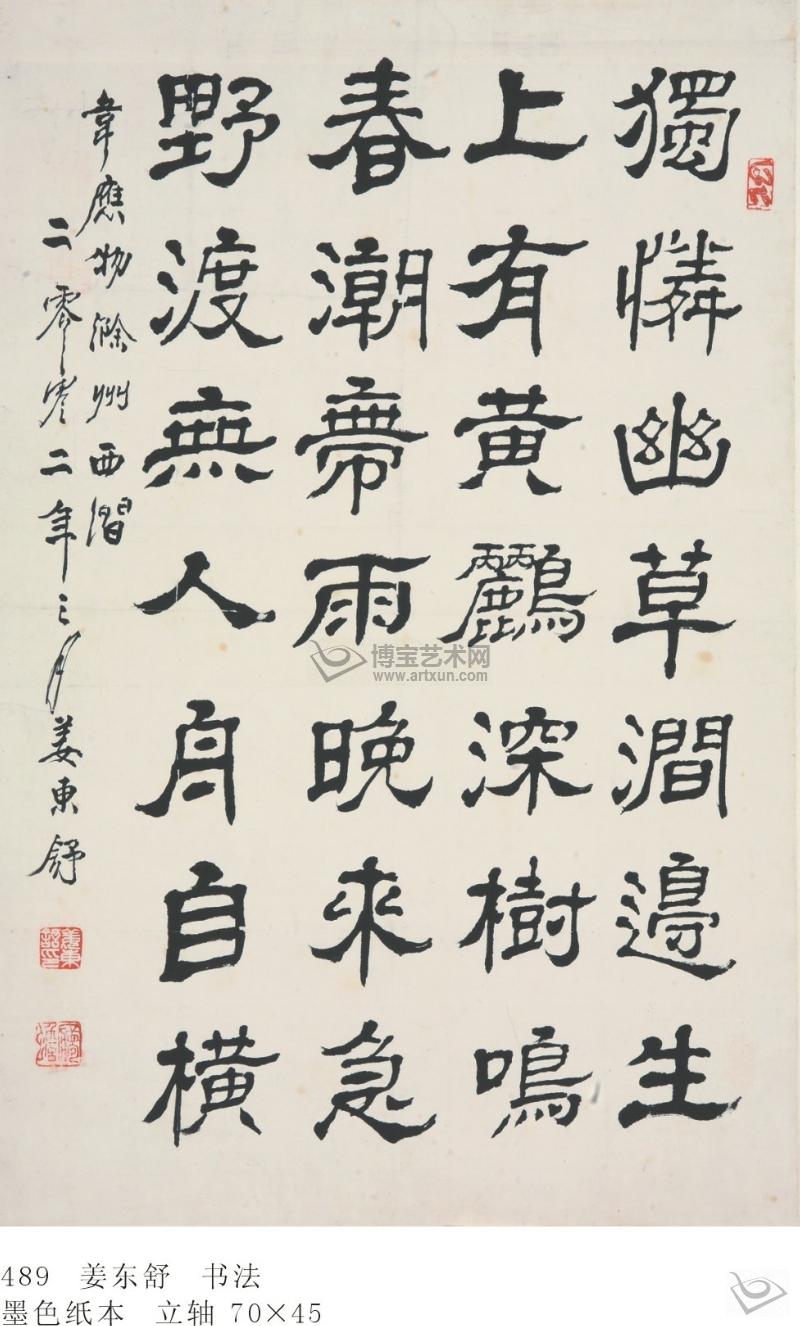 獨憐幽草澗邊生
上有黄鸝深樹鳴
春潮帶雨晚來急
野渡無人舟自橫
韋應物滁州西澗
二零零二年三月姜東舒
姜東舒印
博宝艺术网
www.artxun.com
489 姜东舒 书法
墨色纸本 立轴 70×45